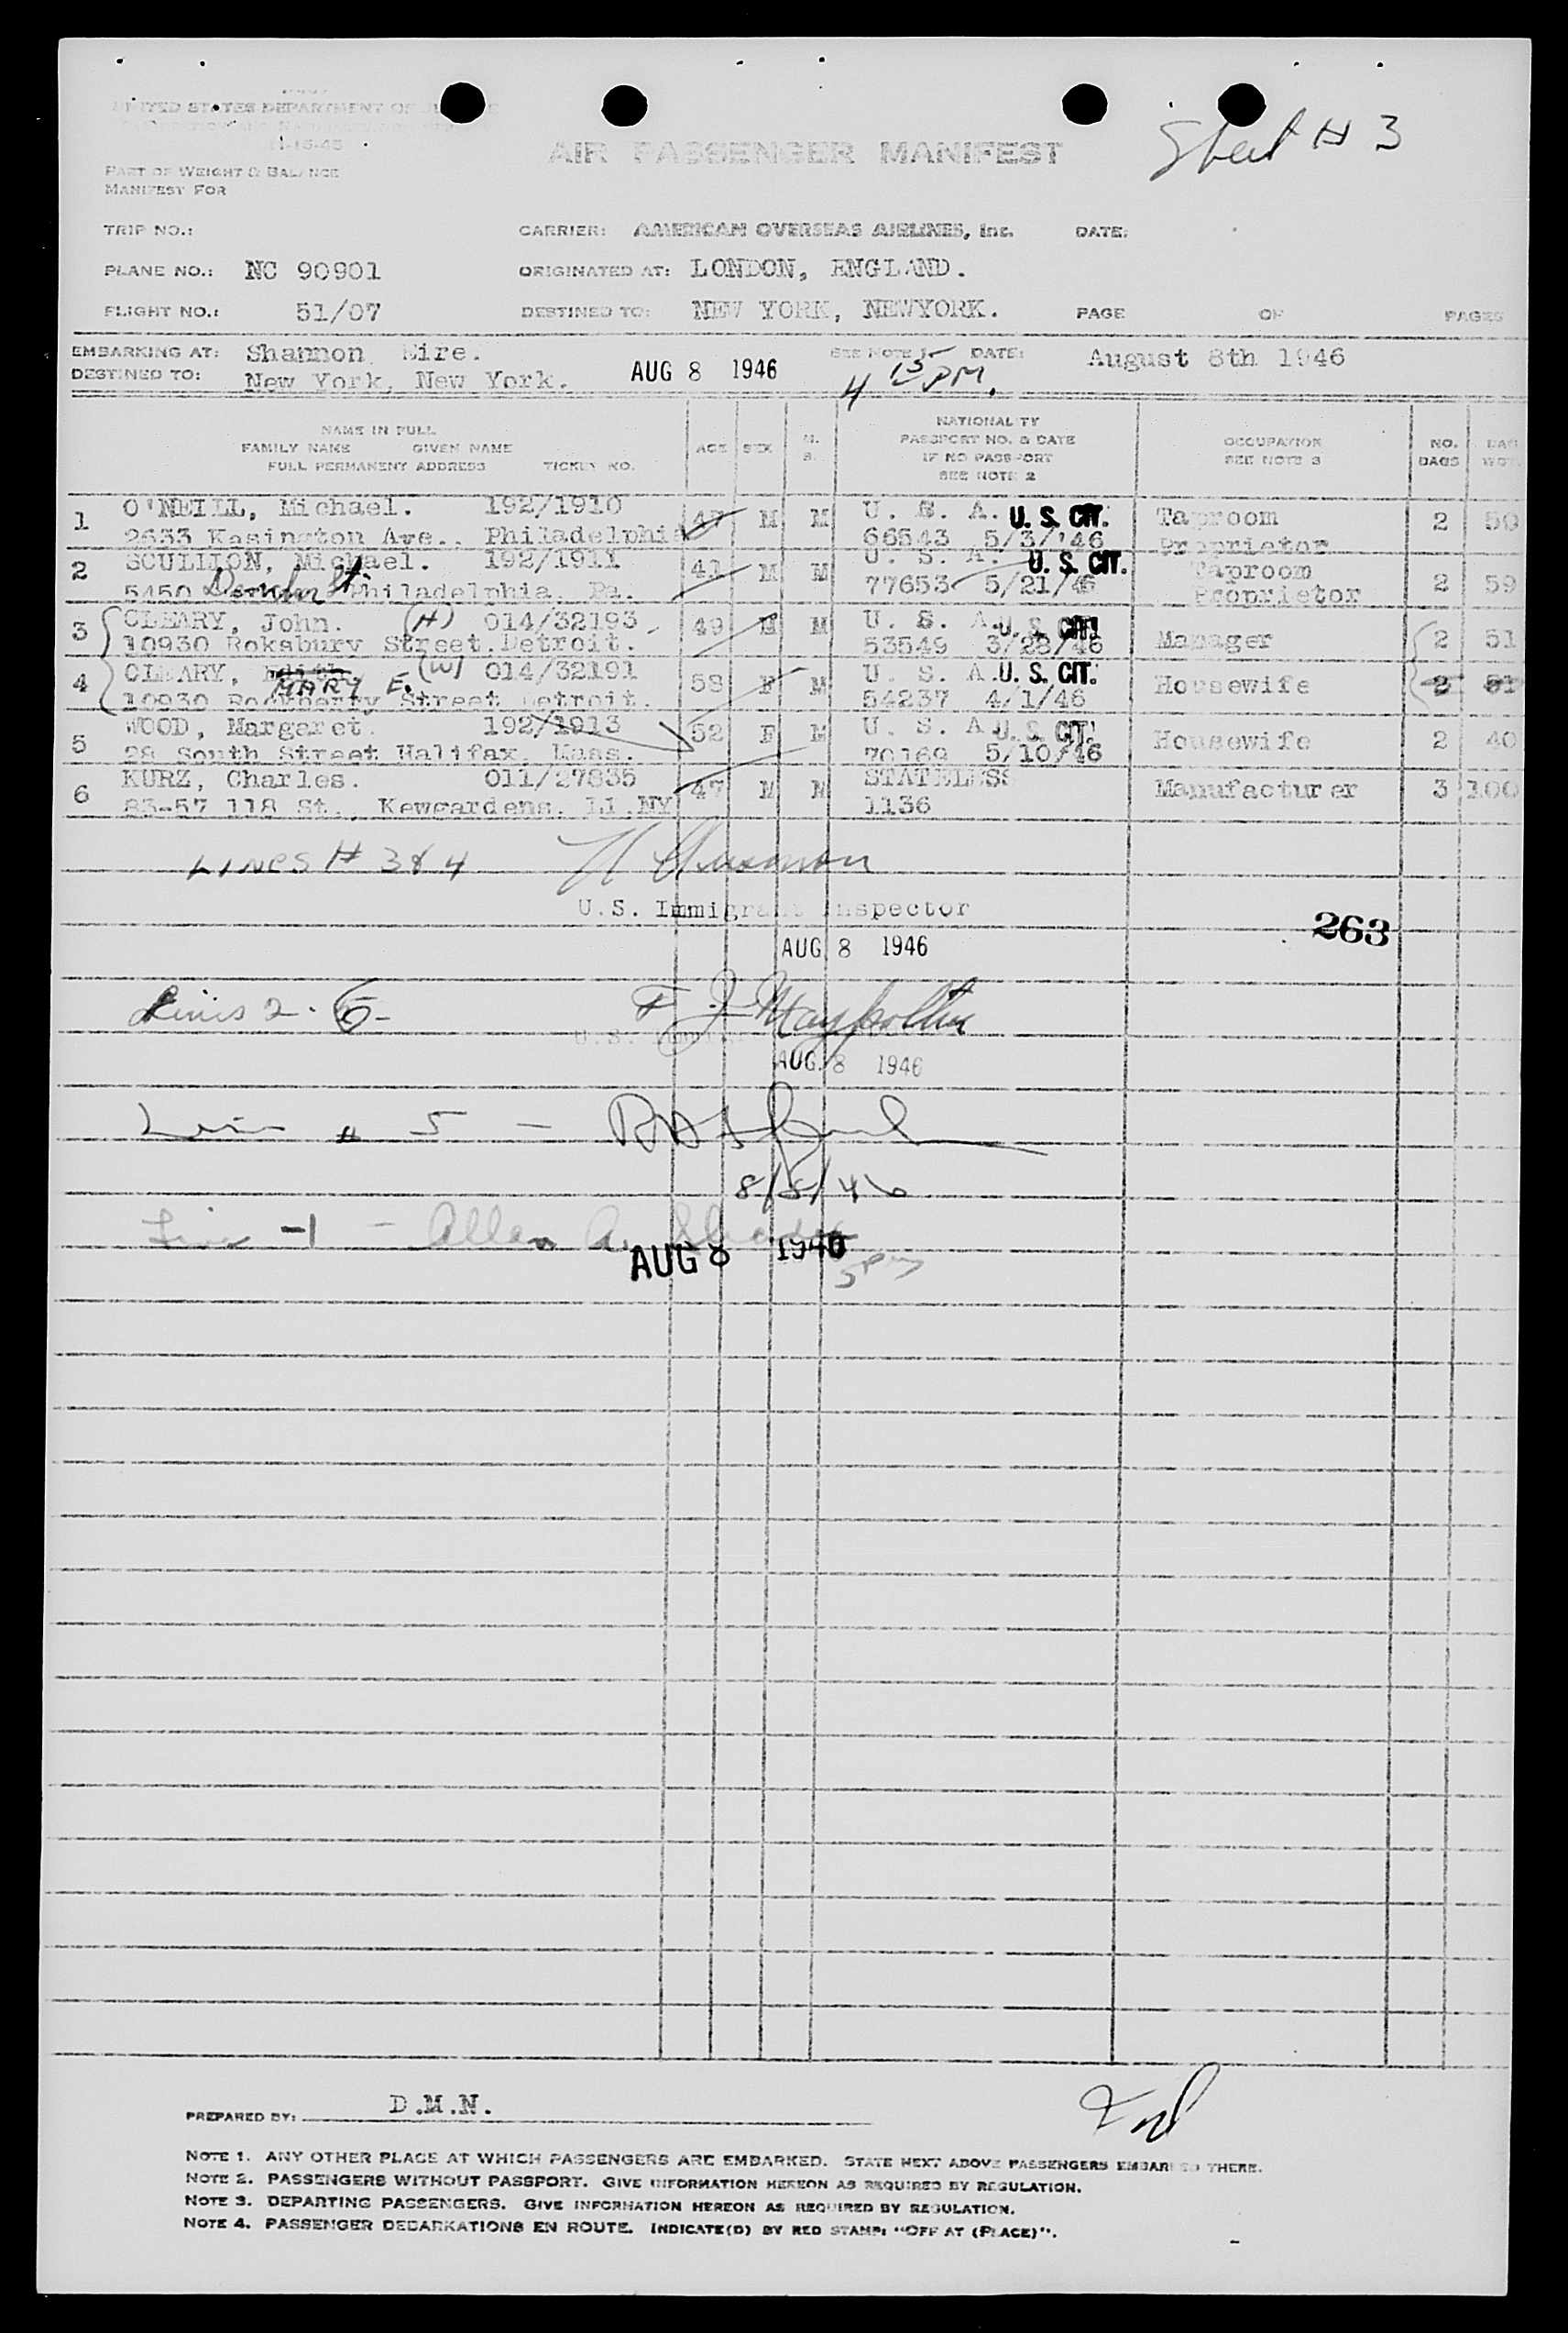 UNITED STATES DEPARTMENT OF
11-15-45
AIR PASSENGER MANIFEST
Sheet # 3
PART OF WEIGHT & BALANCE
MANIFEST FOR
TRIP NO.: CARRIER: AMERICAN OVERSEAS AIRLINES, Inc. DATE:
PLANE NO.: NC 90901 ORIGINATED AT: LONDON, ENGLAND.
FLIGHT NO.: 51/07 DESTINED TO: NEW YORK, NEWYORK. PAGE OF PAGES
EMBARKING AT: Shannon Eire. SEE NOTE 1 DATE: August 8th 1946
DESTINED TO: New York, New York. AUG 8 1946 4 15 PM.
NAME IN FULL
FAMILY NAME GIVEN NAME
FULL PERMANENT ADDRESS TICKET NO.
AGE SEX M. S.
NATIONALITY
PASSPORT NO. & DATE
IF NO PASSPORT
SEE NOTE 2
OCCUPATION
SEE NOTE 3
NO. BAGS
BAG WGT.
1 O'NEILL, Michael. 192/1910 47 M M U. S. A. U. S. CIT. Taproom 2 50
2633 Kasington Ave., Philadelphia 66543 5/3/'46 Proprietor
2 SCULLION, Michael. 192/1911 41 M M U. S. A. U. S. CIT. Taproom 2 59
5450 St. Philadelphia, Pa. 77653 5/21/46 Proprietor
3 CLEARY, John. (H) 014/32193 49 M M U. S. A. U. S. CIT. Manager 2 51
10930 Roksbury Street, Detroit. 53549 3/28/46
4 CLEARY, Edith MARY E. (W) 014/32191 58 F M U. S. A. U. S. CIT. Housewife 2 51
10930 Rockberry Street Detroit. 54237 4/1/46
5 WOOD, Margaret. 192/1913 52 F M U. S. A. U. S. CIT. Housewife 2 40
28 South Street Halifax, Mass. 70169 5/10/46
6 KURZ, Charles. 011/27835 47 M M STATELESS Manufacturer 3 100
83-57 118 St., Kewgardens, LI.NY 1136
LINES # 3 & 4
U.S. Immigrant Inspector
263
AUG 8 1946
Lines 2 · 6 - F J
U. S.
AUG 8 1946
Line # 5 -
8/8/46
Line -1 - Allen A.
AUG 8 1946
5 pm
PREPARED BY: D.M.N.
NOTE 1. ANY OTHER PLACE AT WHICH PASSENGERS ARE EMBARKED. STATE NEXT ABOVE PASSENGERS EMBARKED THERE.
NOTE 2. PASSENGERS WITHOUT PASSPORT. GIVE INFORMATION HEREON AS REQUIRED BY REGULATION.
NOTE 3. DEPARTING PASSENGERS. GIVE INFORMATION HEREON AS REQUIRED BY REGULATION.
NOTE 4. PASSENGER DEBARKATIONS EN ROUTE. INDICATE(D) BY RED STAMP: "OFF AT (PLACE)".